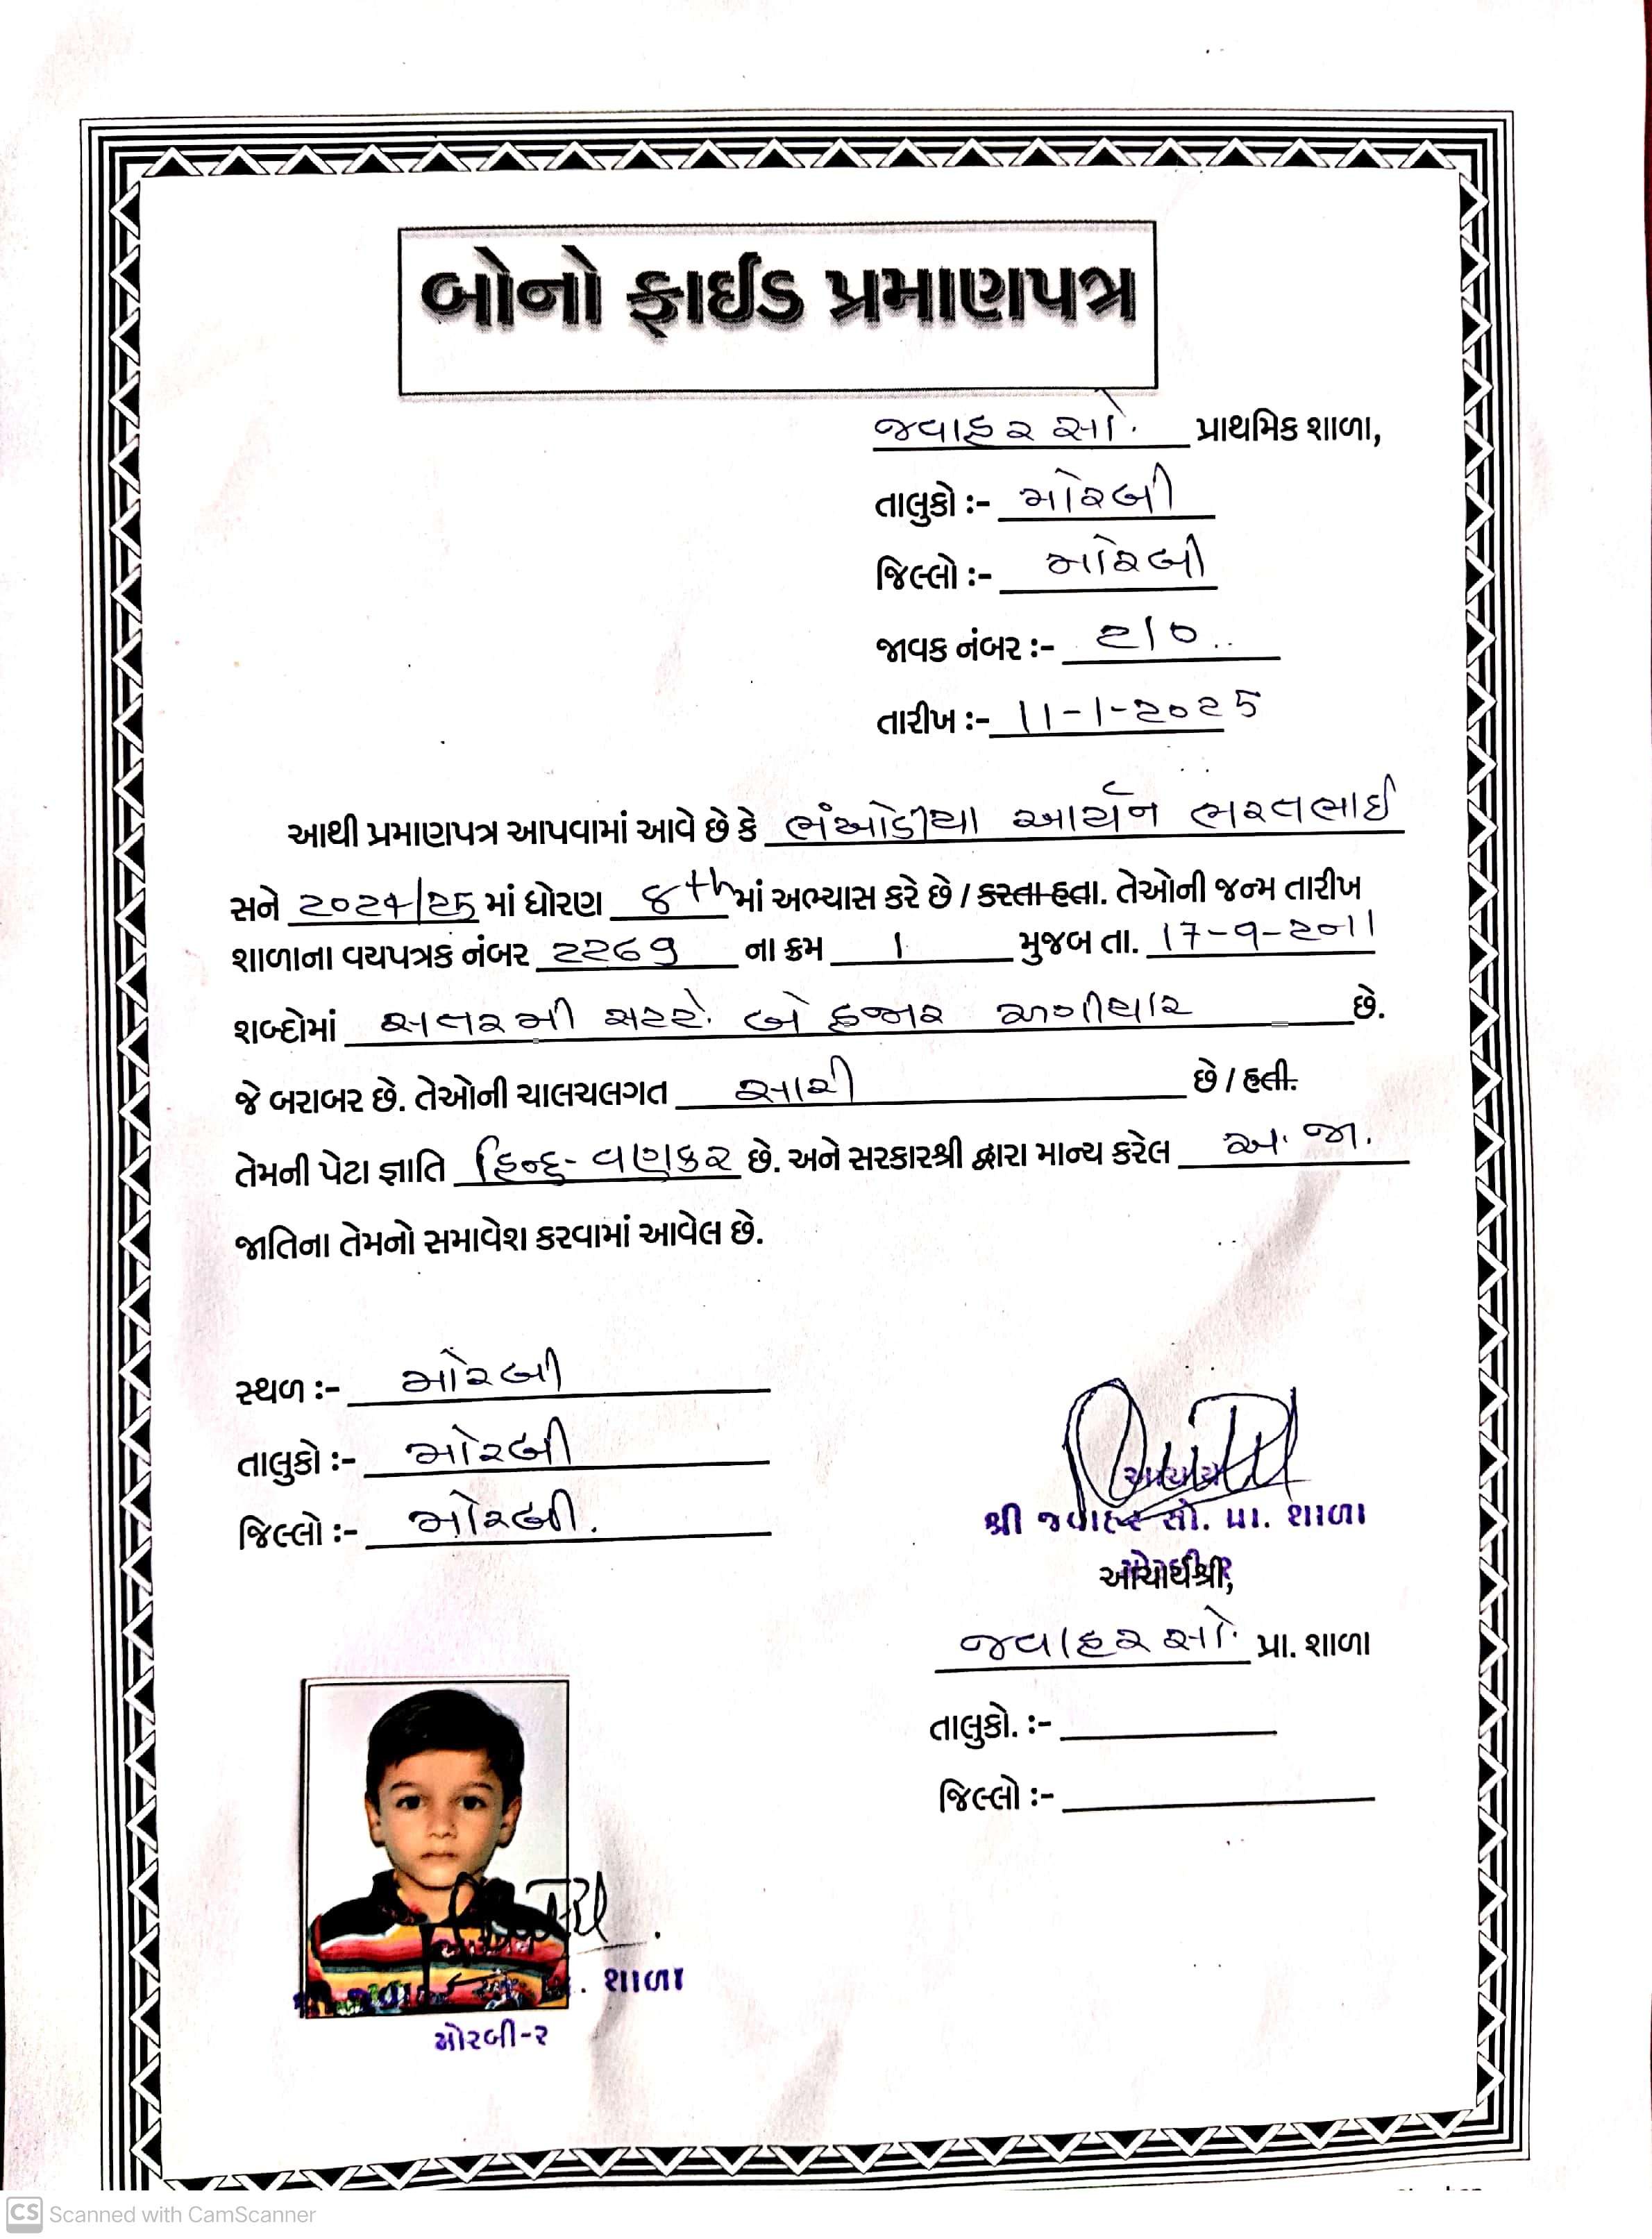 બોનો ફાઈડ પ્રમાણપત્ર
જવાહર સો. પ્રાથમિક શાળા,
તાલુકો :- મોરબી
જિલ્લો :- મોરબી
જાવક નંબર :- ૨૧૦..
તારીખ :- 11-1-2025
આથી પ્રમાણપત્ર આપવામાં આવે છે કે ભંખોડીયા આર્યન ભરતભાઈ
સને ૨૦૨૪/૨૫ માં ધોરણ 8th માં અભ્યાસ કરે છે / કરતા હતા. તેઓની જન્મ તારીખ
શાળાના વયપત્રક નંબર 2269 ના ક્રમ 1 મુજબ તા. 17-9-2011
શબ્દોમાં સતરમી સપ્ટે. બે હજાર અગીયાર છે.
જે બરાબર છે. તેઓની ચાલચલગત સારી છે / હતી.
તેમની પેટા જ્ઞાતિ હિન્દુ-વણકર છે. અને સરકારશ્રી દ્વારા માન્ય કરેલ અ.જા.
જાતિના તેમનો સમાવેશ કરવામાં આવેલ છે.
સ્થળ :- મોરબી
તાલુકો :- મોરબી
જિલ્લો :- મોરબી.
આચાર્ય
શ્રી જવાહર સો. પ્રા. શાળા
આચાર્યશ્રી,
જવાહર સો. પ્રા. શાળા
તાલુકો. :-
જિલ્લો :-
શાળા
મોરબી-૨
CS Scanned with CamScanner